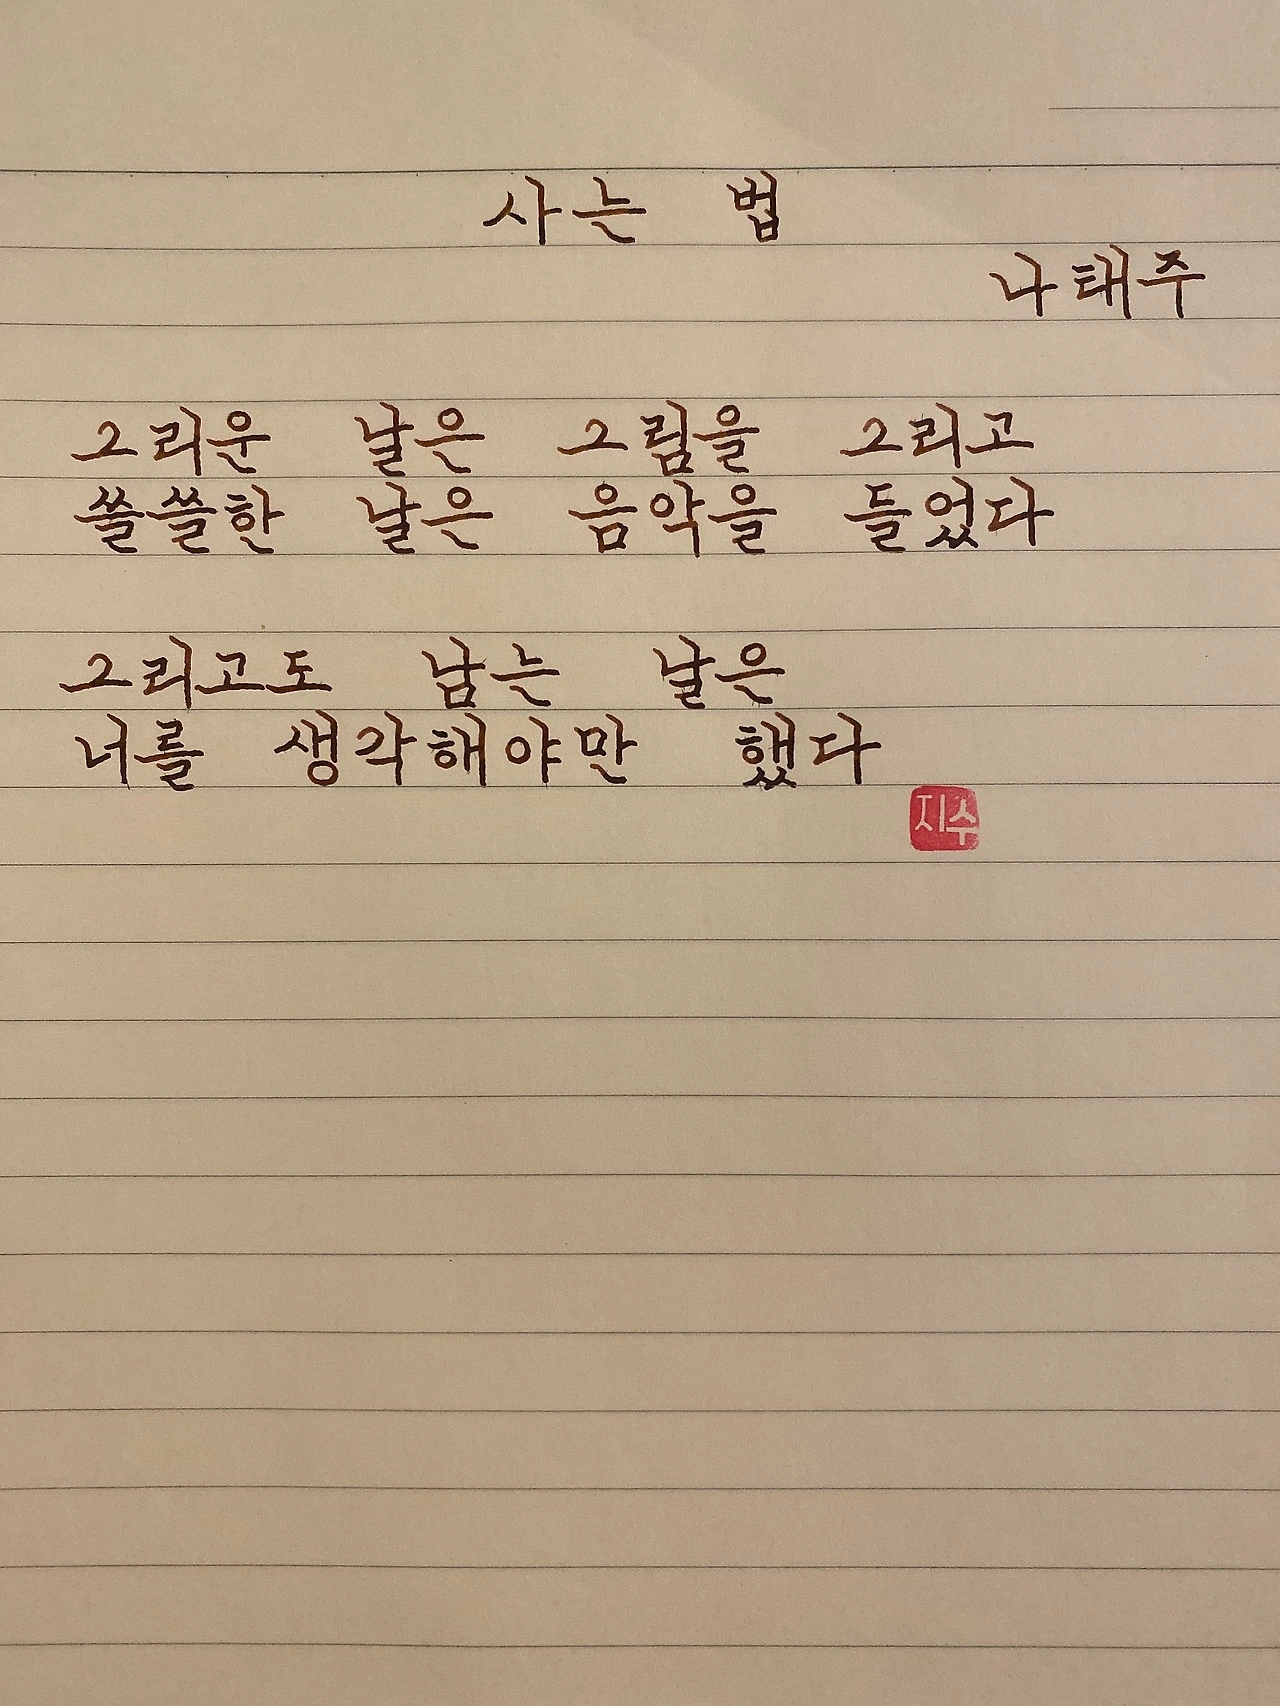 사는 법
나태주
그리운 날은 그림을 그리고
쓸쓸한 날은 음악을 들었다
그리고도 남는 날은
너를 생각해야만 했다
지수